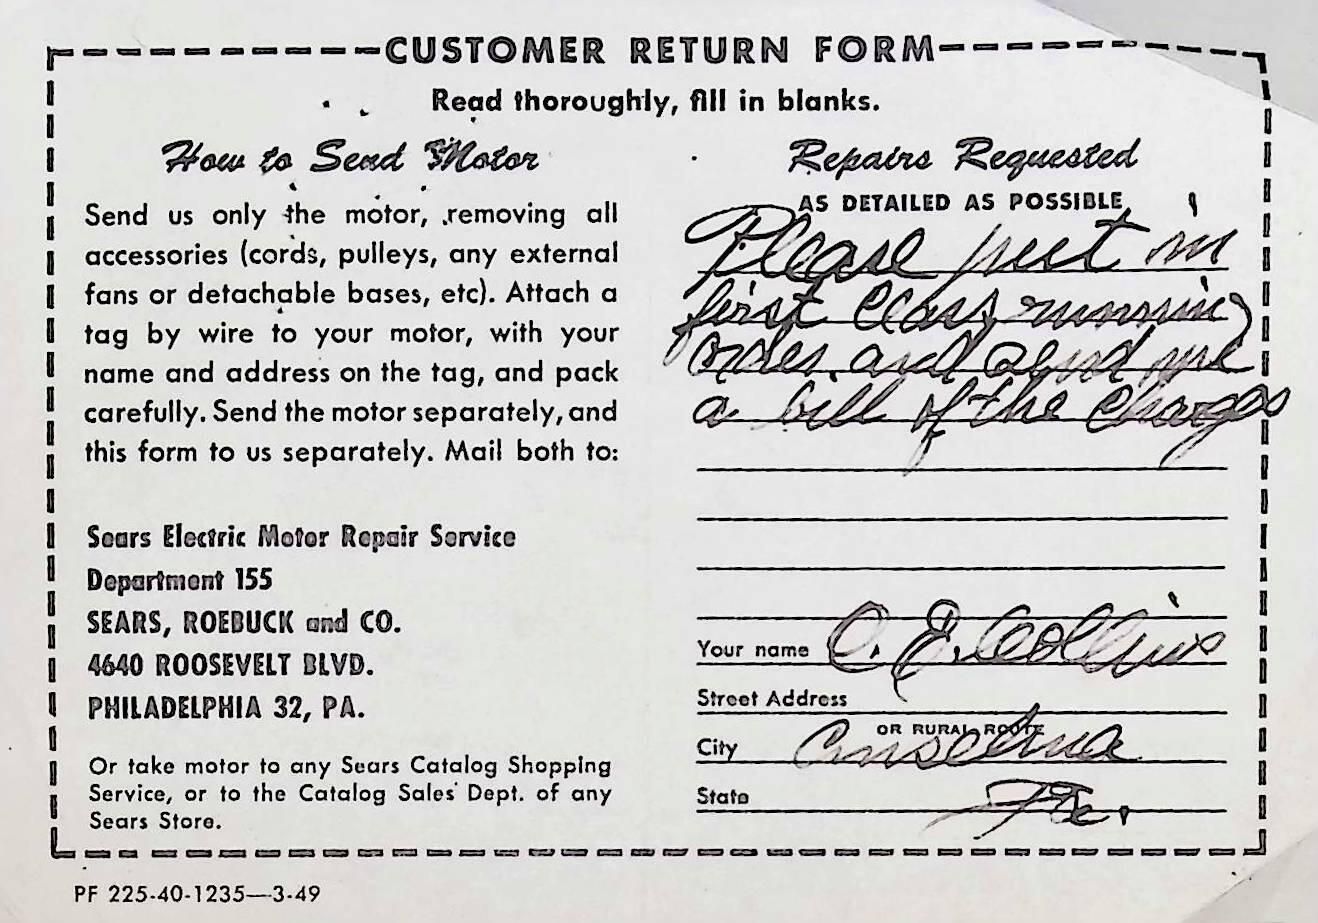 CUSTOMER RETURN FORM
Read thoroughly, fill in blanks.
How to Send Motor
Send us only the motor, removing all
accessories (cords, pulleys, any external
fans or detachable bases, etc). Attach a
tag by wire to your motor, with your
name and address on the tag, and pack
carefully. Send the motor separately, and
this form to us separately. Mail both to:
Sears Electric Motor Repair Service
Department 155
SEARS, ROEBUCK and CO.
4640 ROOSEVELT BLVD.
PHILADELPHIA 32, PA.
Or take motor to any Sears Catalog Shopping
Service, or to the Catalog Sales Dept. of any
Sears Store.
Repairs Requested
AS DETAILED AS POSSIBLE
Please put in
first class running
order and send me
a bill of the charges
Your name O. E. Collins
Street Address
OR RURAL ROUTE
City
State
PF 225-40-1235—3-49